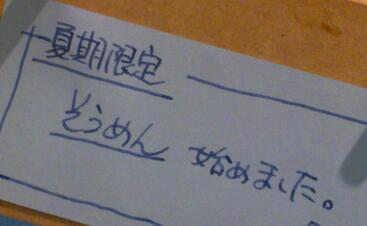 夏期限定
そうめん 始めました。